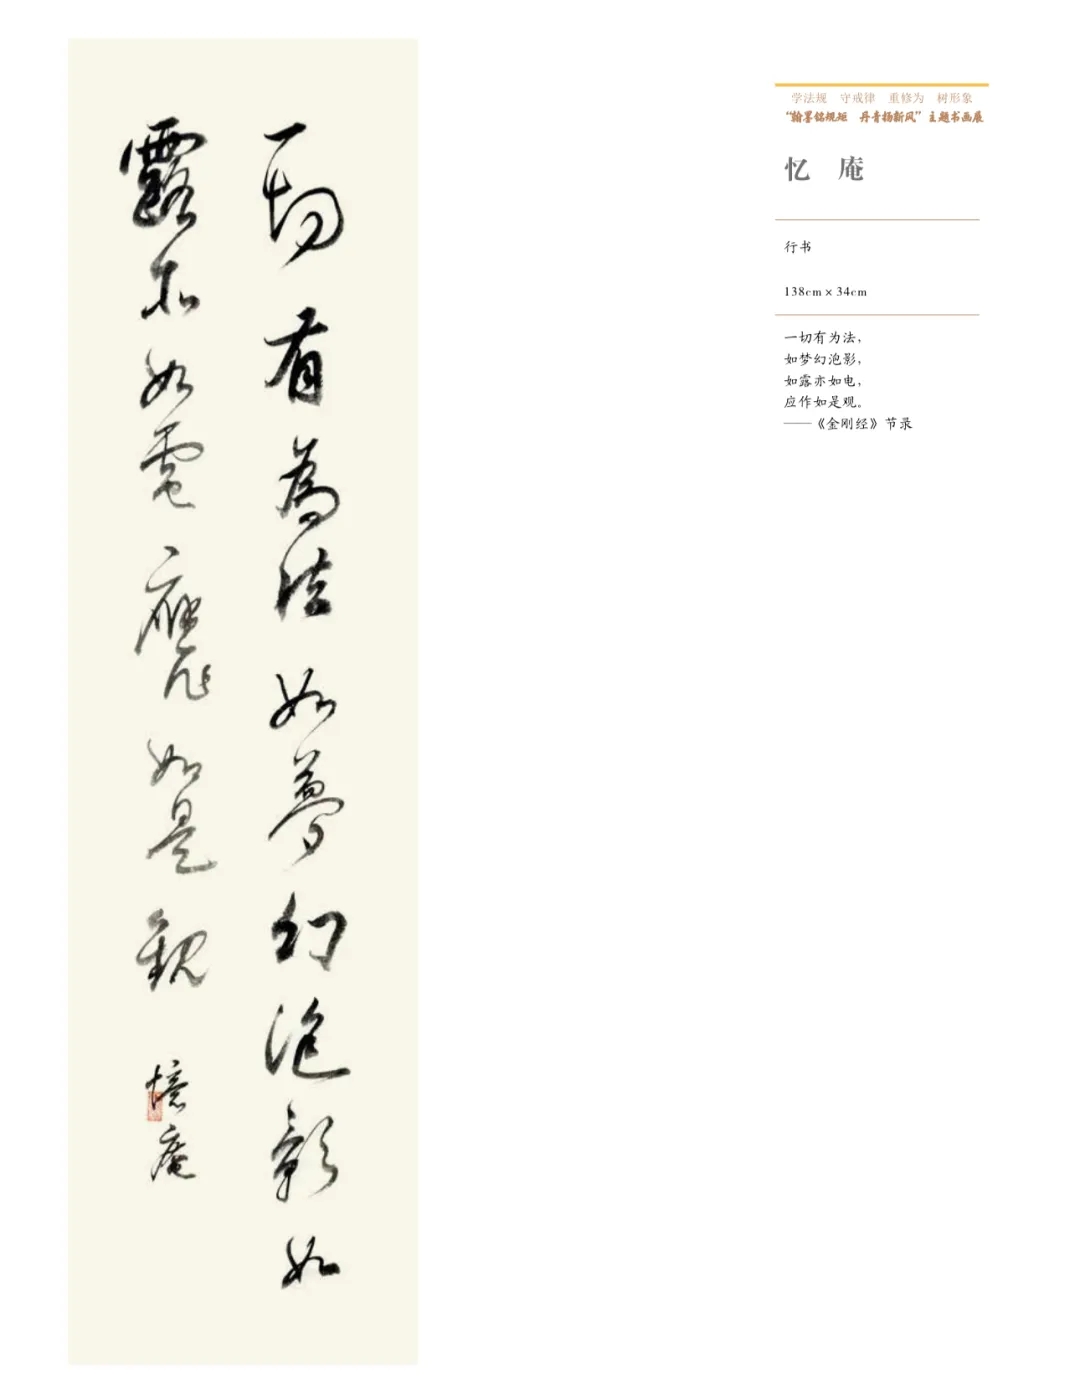 一切有為法如夢幻泡影如
露亦如電應作如是觀
憶庵
学法规 守戒律 重修为 树形象
“翰墨铭规矩 丹青扬新风”主题书画展
忆 庵
行书
138cm × 34cm
一切有为法，
如梦幻泡影，
如露亦如电，
应作如是观。
——《金刚经》节录